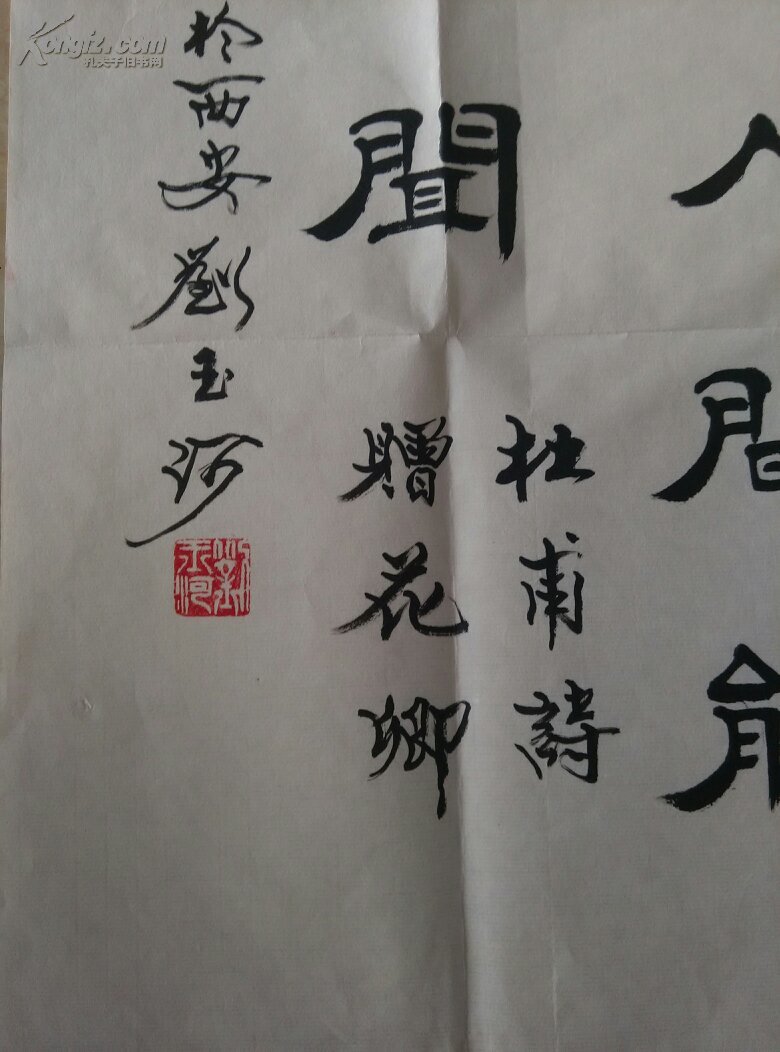 人間能
聞
杜甫詩
贈花卿
於西安劉玉河
劉玉河
Kongfz.com
孔夫子旧书网